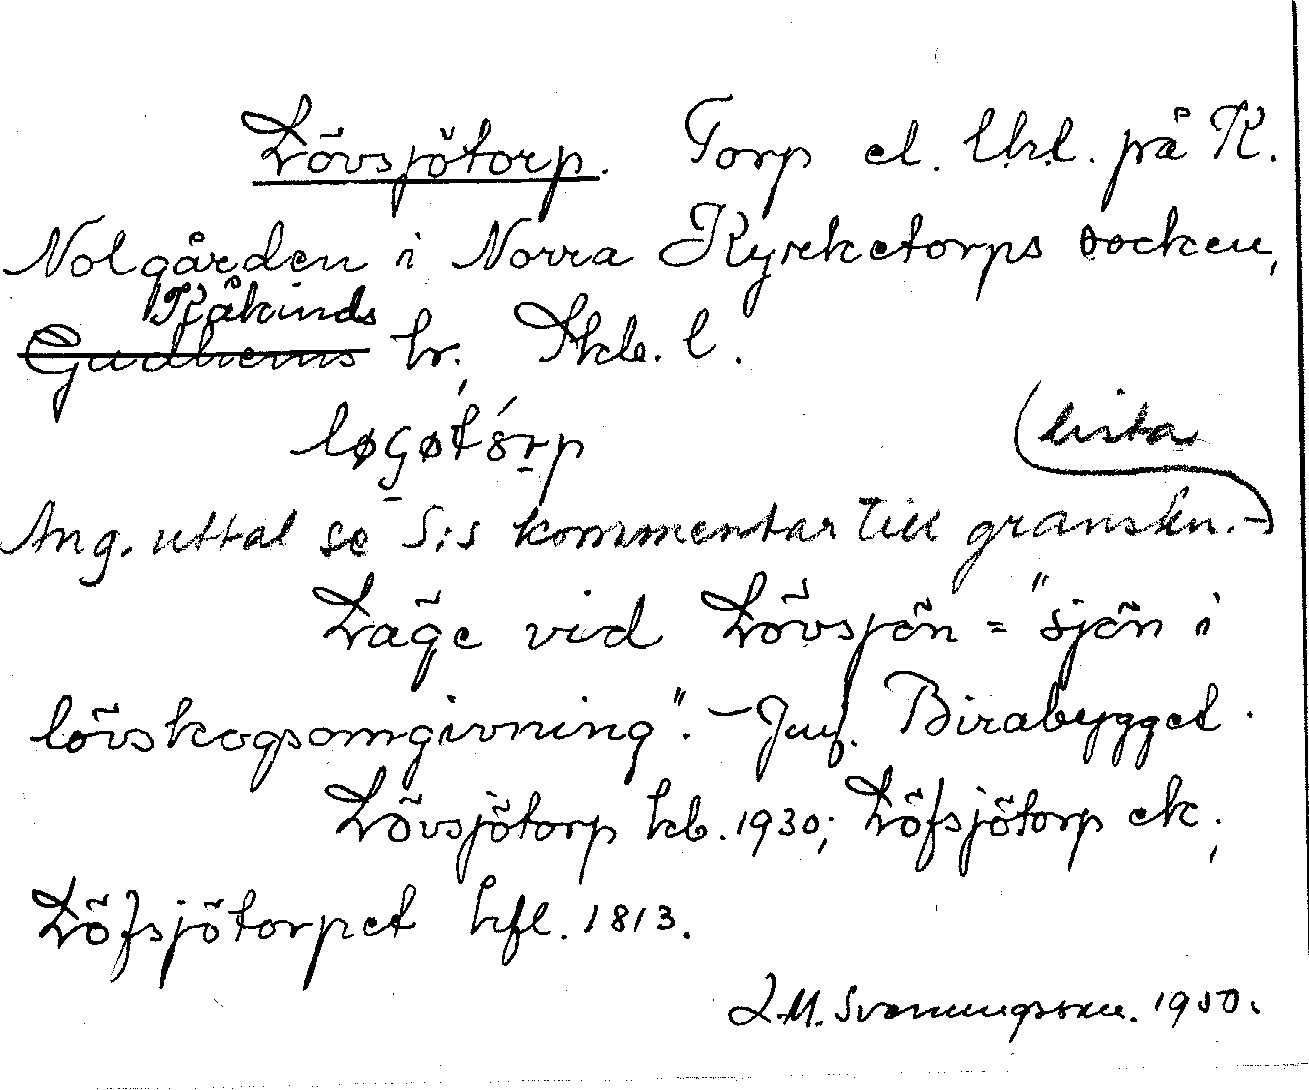 Lövsjötorp. Torp el. lhl. på K.
Nolgården i Norra Kyrketorps socken,
Kåkinds
Gudhems hr. Skb. l.
løgøtórp
(lista
Ang. uttal se S:s kommentar till granskn. –
Läge vid Lövsjön = "sjön i
lövskogsomgivning". – Jmf. Birabygget.
Lövsjötorp kb. 1930; Löfsjötorp ek;
Löfsjötorpet hfl. 1813.
L.M. Svenungsson. 1950.